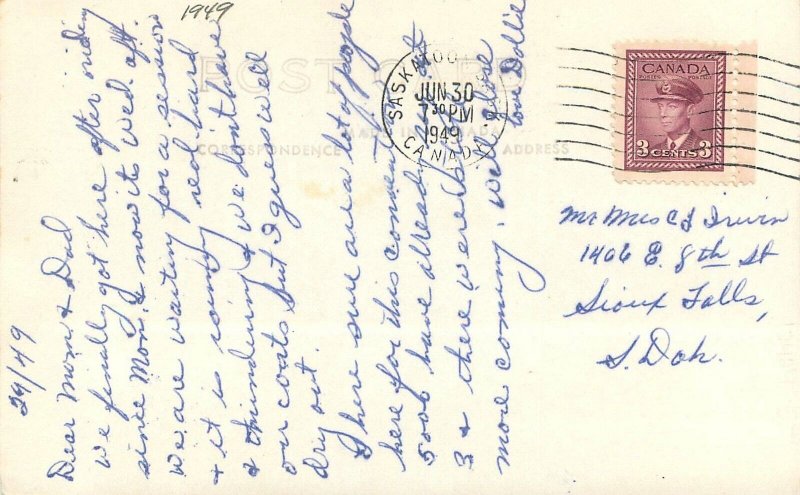 1949
POST CARD
MADE IN CANADA
CORRESPONDENCE
ADDRESS
SASKATOON
JUN 30
7 30 PM
1949
CANADA
CANADA
POSTES POSTAGE
3 CENTS 3
Mr Mrs C J Irwin
1406 E. 8th St
Sioux Falls,
S. Dak.
29/49
Dear Mom & Dad
we finally got here after riding
since Mon. & now its Wed. aft.
we are waiting for a session
& it is raining real hard
& thundering & we don't have
our coats but I guess well
dry out.
There sure are a lot of people
here for this convent
5006 have already
3 & there were
more coming. will
Don Dollie